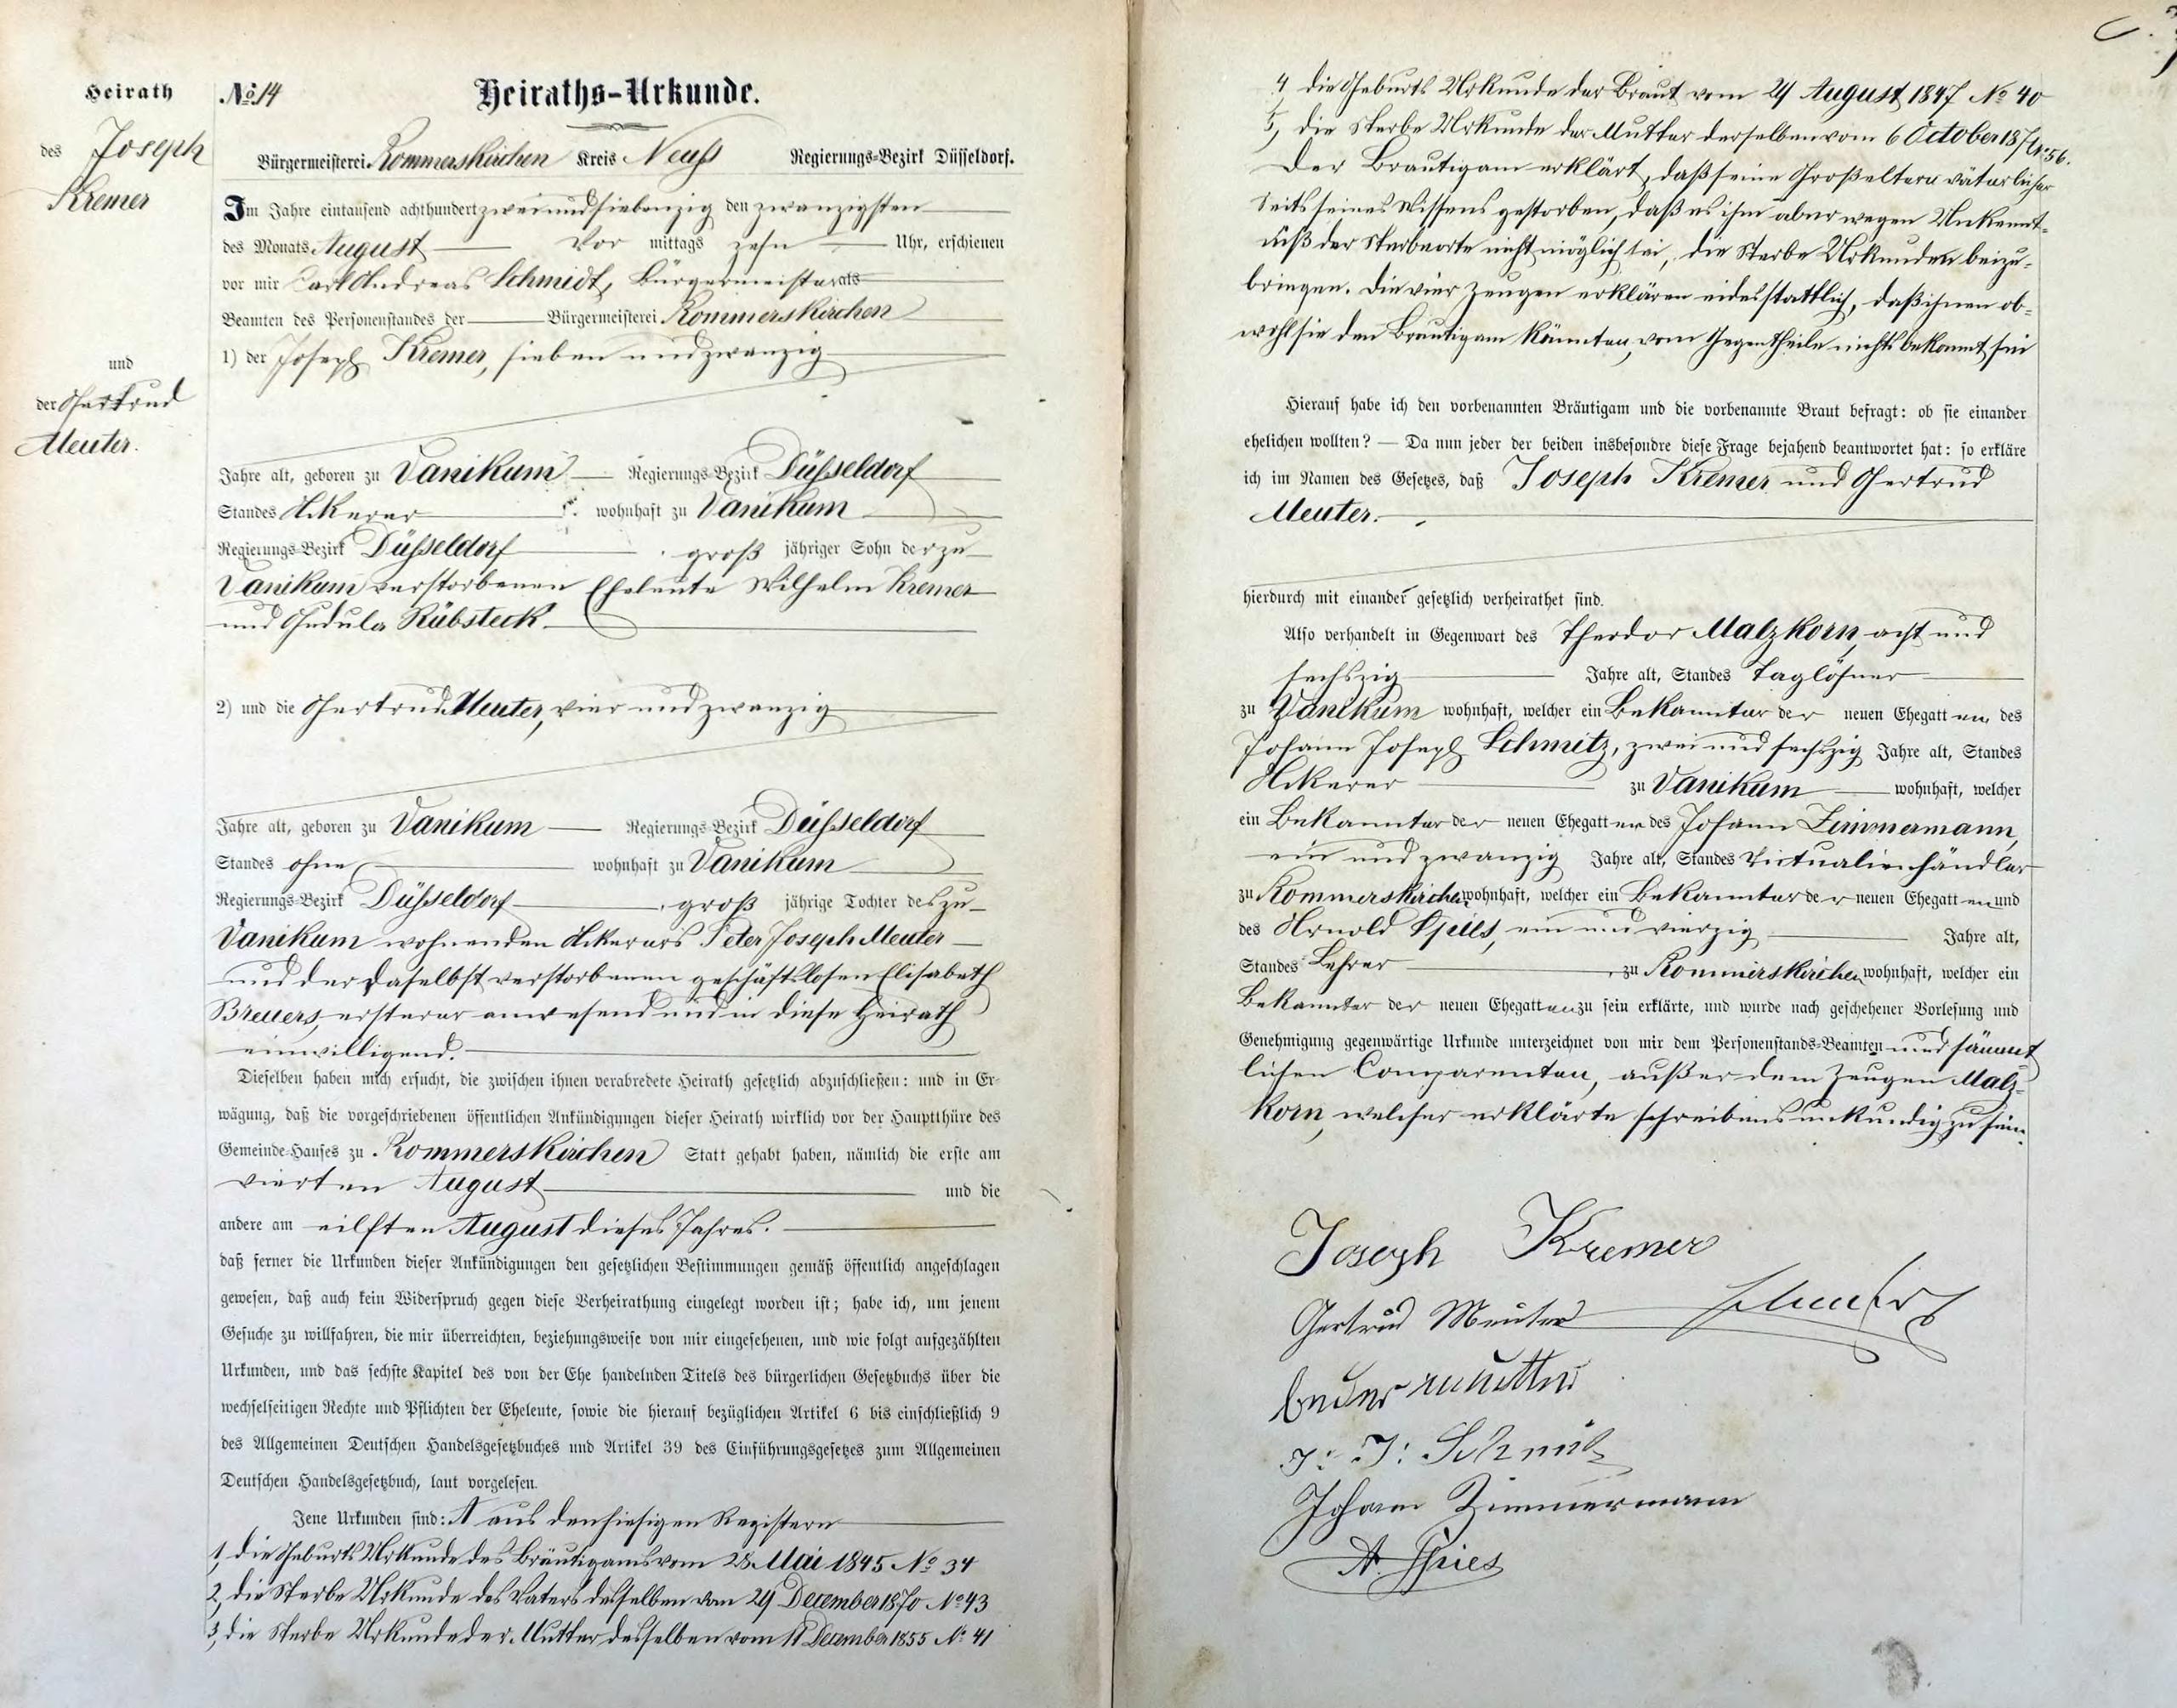 Heirath
des Joseph
Kremer
und
der Gertrud
Meuter.
No. 14
Heiraths-Urkunde.
Bürgermeisterei Rommerskirchen Kreis Neuß Regierungs-Bezirk Düsseldorf.
Im Jahre eintausend achthundert zweiundsiebenzig den zwanzigsten
des Monats August Vor mittags zehn Uhr, erschienen
vor mir Carl Andreas Schmidt, Bürgermeister als
Beamten des Personenstandes der Bürgermeisterei Rommerskirchen
1) der Joseph Kremer, sieben und zwanzig
Jahre alt, geboren zu Vanikum Regierungs-Bezirk Düsseldorf
Standes Ackerer wohnhaft zu Vanikum
Regierungs-Bezirk Düsseldorf groß jähriger Sohn der zu
Vanikum verstorbenen Eheleute Wilhelm Kremer
und Gudula Rübsteck.
2) und die Gertrud Meuter, vier und zwanzig
Jahre alt, geboren zu Vanikum Regierungs-Bezirk Düsseldorf
Standes ohne wohnhaft zu Vanikum
Regierungs-Bezirk Düsseldorf groß jährige Tochter des zu
Vanikum wohnenden Ackerers Peter Joseph Meuter
und der daselbst verstorbenen geschäftslosen Elisabeth
Breuers, ersterer anwesend und in diese Heirath
einwilligend.
Dieselben haben mich ersucht, die zwischen ihnen verabredete Heirath gesetzlich abzuschließen: und in Er-
wägung, daß die vorgeschriebenen öffentlichen Ankündigungen dieser Heirath wirklich vor der Hauptthüre des
Gemeinde-Hauses zu Rommerskirchen Statt gehabt haben, nämlich die erste am
vierten August und die
andere am eilften August dieses Jahres.
daß ferner die Urkunden dieser Ankündigungen den gesetzlichen Bestimmungen gemäß öffentlich angeschlagen
gewesen, daß auch kein Widerspruch gegen diese Verheirathung eingelegt worden ist; habe ich, um jenem
Gesuche zu willfahren, die mir überreichten, beziehungsweise von mir eingesehenen, und wie folgt aufgezählten
Urkunden, und das sechste Kapitel des von der Ehe handelnden Titels des bürgerlichen Gesetzbuchs über die
wechselseitigen Rechte und Pflichten der Eheleute, sowie die hierauf bezüglichen Artikel 6 bis einschließlich 9
des Allgemeinen Deutschen Handelsgesetzbuches und Artikel 39 des Einführungsgesetzes zum Allgemeinen
Deutschen Handelsgesetzbuch, laut vorgelesen.
Jene Urkunden sind: A aus den hiesigen Registern
1, die Geburts Urkunde des Bräutigams vom 28. Mai 1845 No 34
2, die Sterbe Urkunde des Vaters desselben vom 29 December 1870 No 43
3, die Sterbe Urkunde der Mutter desselben vom 11 December 1855 No 41
4 die Geburts Urkunde der Braut vom 29 August 1847 No 40
5, die Sterbe Urkunde der Mutter derselben vom 6 October 1871 No 56.
Der Bräutigam erklärt, daß seine Großeltern väterlicher
Seits seines Wissens gestorben, daß es ihm aber wegen Unkennt-
niß der Sterbeorte nicht möglich sei, die Sterbe Urkunden beizu-
bringen. Die vier Zeugen erklären eidesstattlich, daß ihnen ob-
wohl sie den Bräutigam kännten, vom Gegentheile nichts bekannt sei
Hierauf habe ich den vorbenannten Bräutigam und die vorbenannte Braut befragt: ob sie einander
ehelichen wollten? — Da nun jeder der beiden insbesondre diese Frage bejahend beantwortet hat: so erkläre
ich im Namen des Gesetzes, daß Joseph Kremer und Gertrud
Meuter.
hierdurch mit einander gesetzlich verheirathet sind.
Also verhandelt in Gegenwart des Theodor Malzkorn, acht und
sechszig Jahre alt, Standes Taglöhner
zu Vanikum wohnhaft, welcher ein Bekannter der neuen Ehegatten, des
Johann Joseph Schmitz, zwei und sechszig Jahre alt, Standes
Ackerer zu Vanikum wohnhaft, welcher
ein Bekannter der neuen Ehegatten des Johann Zimmermann,
ein und zwanzig Jahre alt, Standes Victualienhändler
zu Rommerskirchen wohnhaft, welcher ein Bekannter der neuen Ehegatten und
des Arnold Spies, ein und vierzig Jahre alt,
Standes Lehrer zu Rommerskirchen wohnhaft, welcher ein
Bekannter der neuen Ehegatten zu sein erklärte, und wurde nach geschehener Vorlesung und
Genehmigung gegenwärtige Urkunde unterzeichnet von mir dem Personenstands-Beamten und sämmt-
lichen Comparenten, außer dem Zeugen Malz-
korn, welcher erklärte schreibensunkundig zu sein.
Joseph Kremer
Gertrud Meuter
J: J: Schmitz
Johann Zimmermann
A. Spies